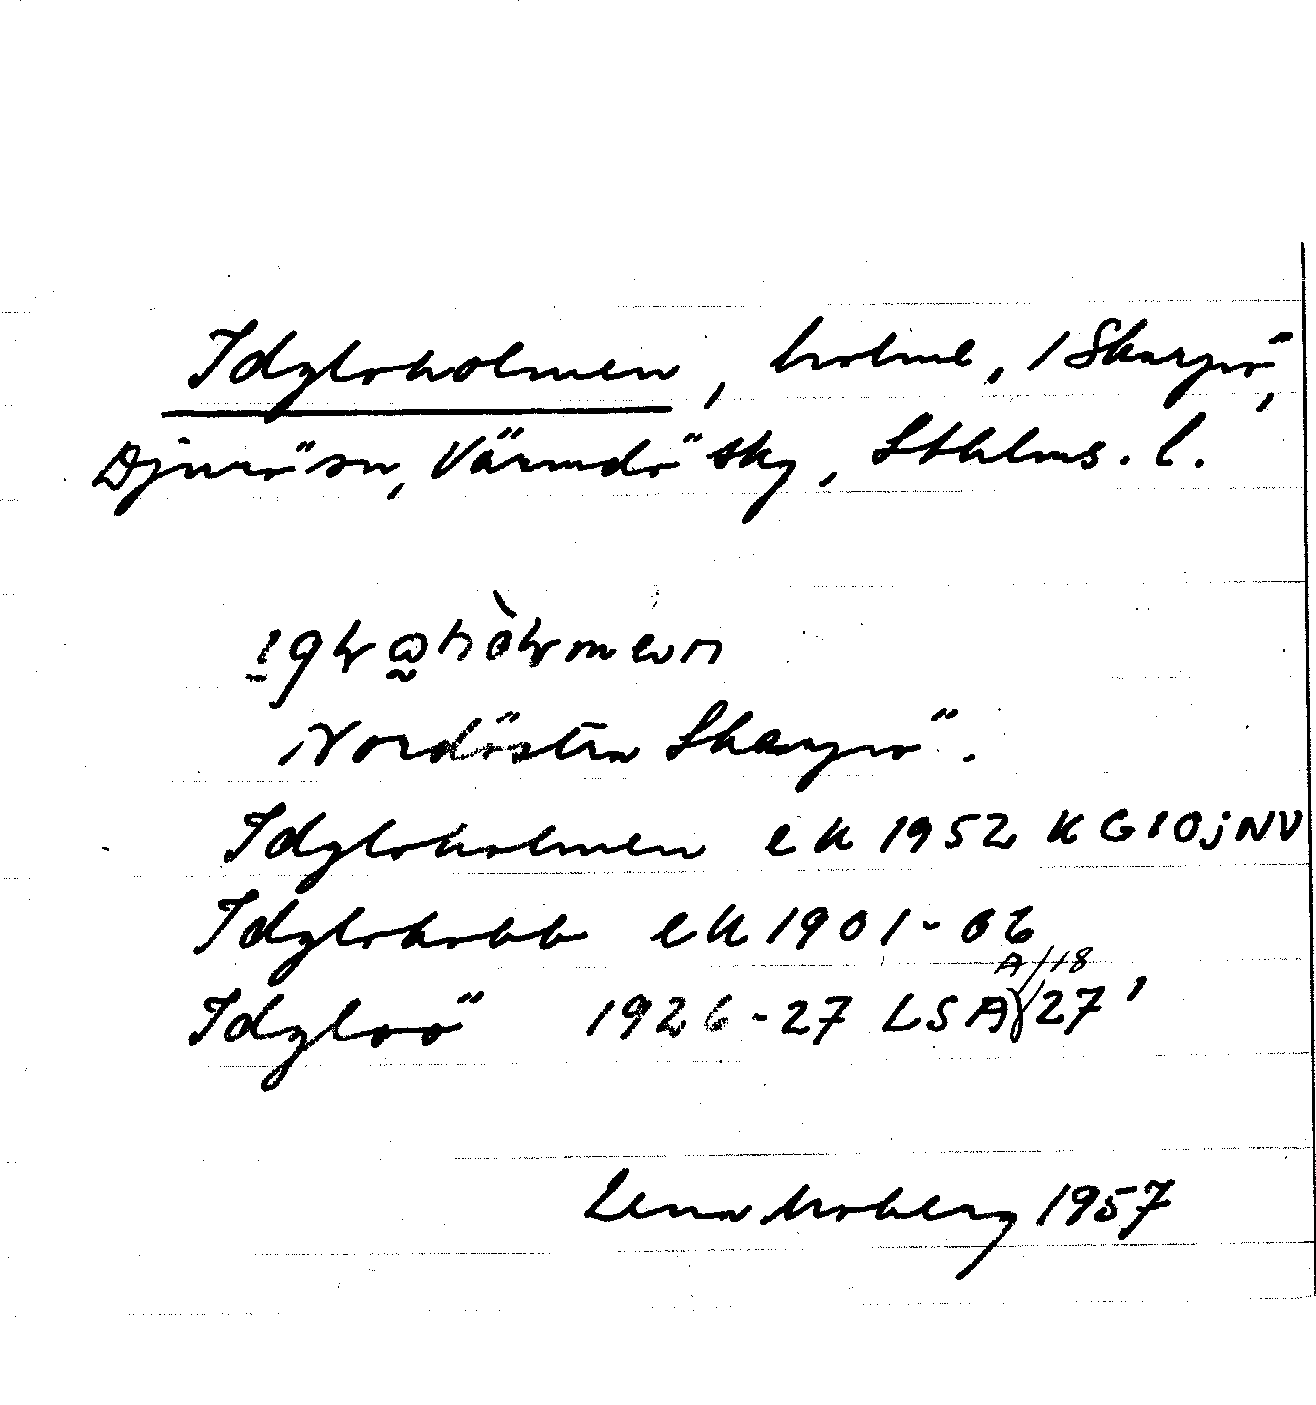 Idgloholmen, holme, i Skarpö,
Djurö sn, Värmdö skg, Sthlms. l.
Nordöstra Skarpö.
Idgloholmen ek 1952 KG10jNV
Idglokobb ek 1901-06
A/18
Idgloö 1926-27 LSA 27'
Lena Moberg 1957